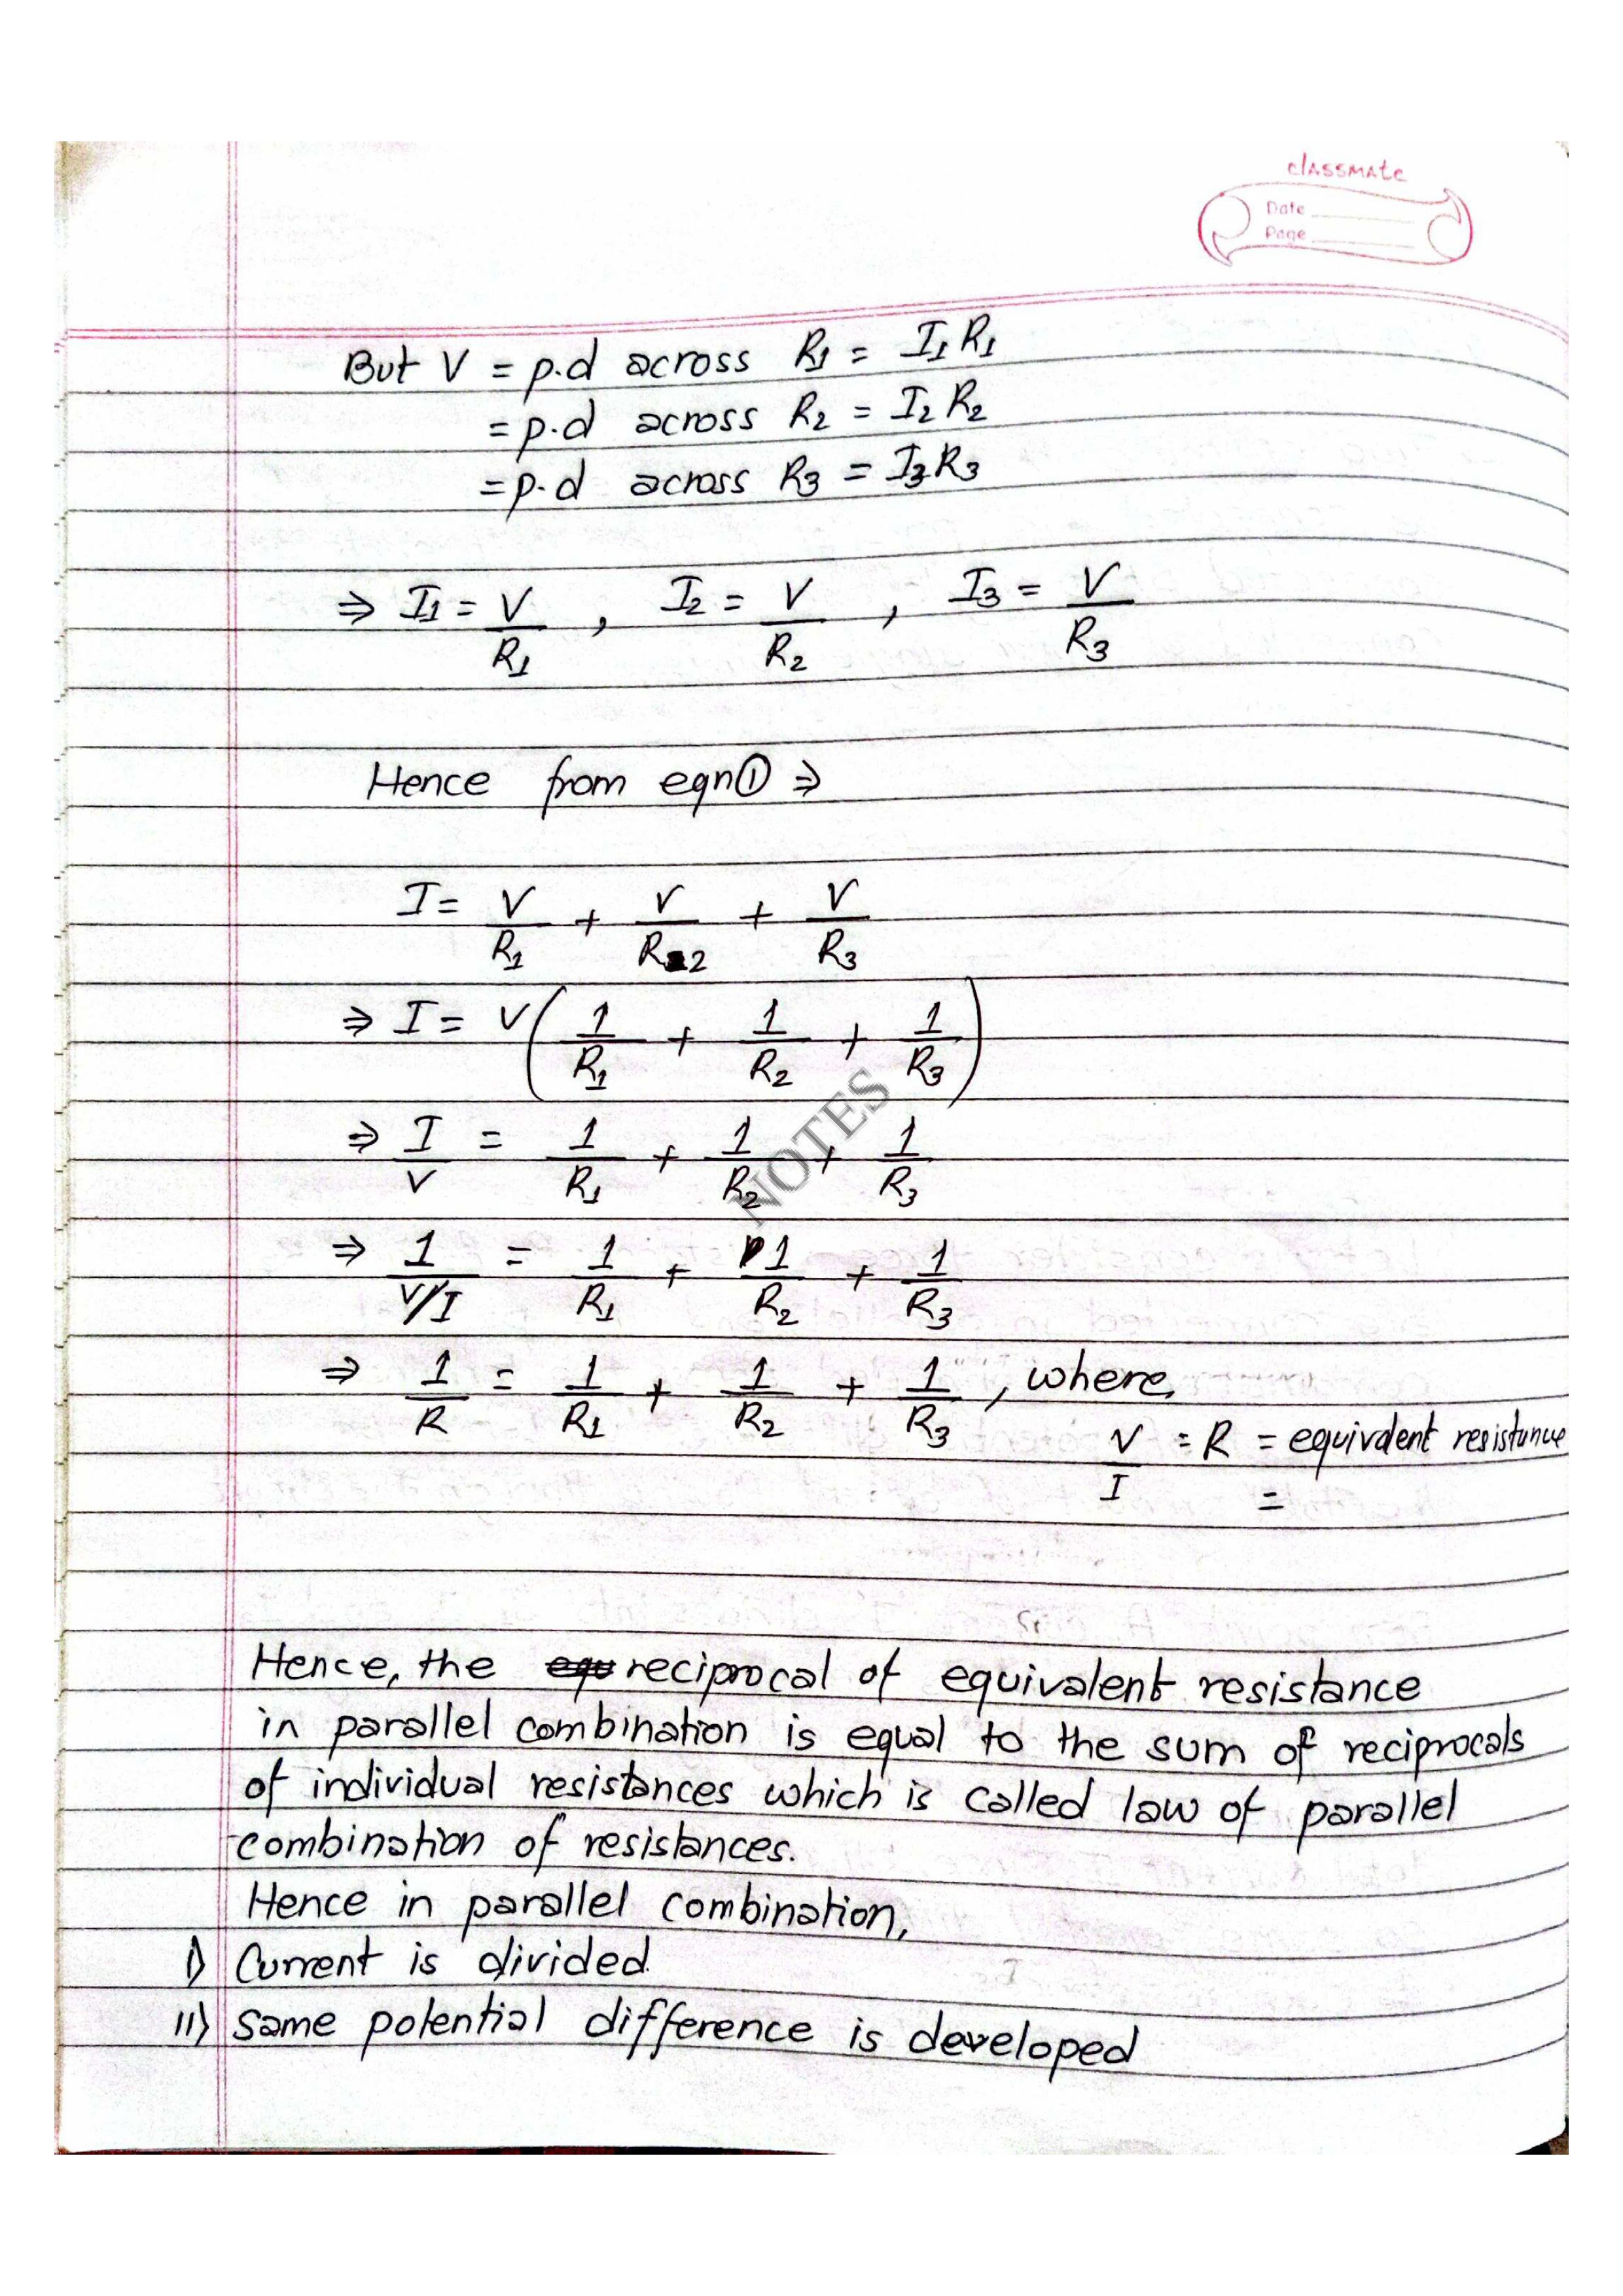 classmate
Date
Page
But V = p.d across R1 = I1 R1
= p.d across R2 = I2 R2
= p.d across R3 = I3 R3
⇒ I1 = V/R1 , I2 = V/R2 , I3 = V/R3
Hence from eqn① ⇒
I = V/R1 + V/R2 + V/R3
⇒ I = V(1/R1 + 1/R2 + 1/R3)
⇒ I/V = 1/R1 + 1/R2 + 1/R3
⇒ 1/V/I = 1/R1 + 1/R2 + 1/R3
⇒ 1/R = 1/R1 + 1/R2 + 1/R3 , where,
V/I = R = equivalent resistance
=
NOTES
Hence, the equ reciprocal of equivalent resistance
in parallel combination is equal to the sum of reciprocals
of individual resistances which is called law of parallel
combination of resistances.
Hence in parallel combination,
i) Current is divided.
ii) same potential difference is developed